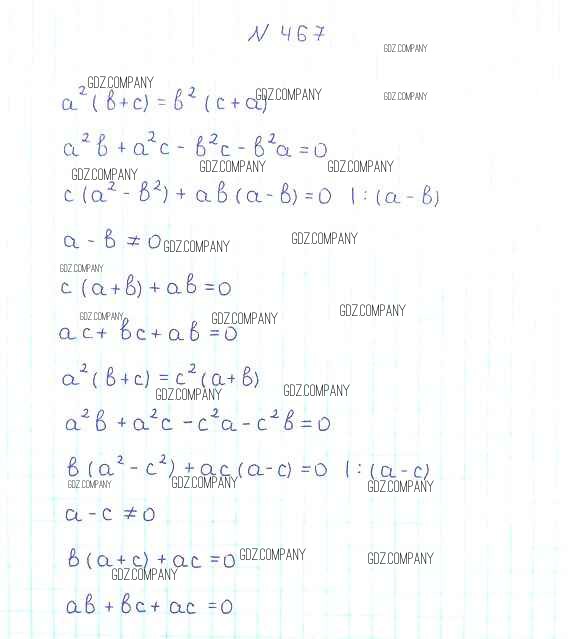 N 467
GDZ.COMPANY
GDZ.COMPANY
a² (в+с) = в² (с+а)
GDZ.COMPANY
GDZ.COMPANY
a²в + a²c - в²c - в²a = 0
GDZ.COMPANY
GDZ.COMPANY
GDZ.COMPANY
c (a² - в²) + aв (a - в) = 0 | : (a - в)
a - в ≠ 0
GDZ.COMPANY
GDZ.COMPANY
GDZ.COMPANY
c (a+в) + aв = 0
GDZ.COMPANY
GDZ.COMPANY
GDZ.COMPANY
ac + вc + aв = 0
a² (в+c) = c² (a+в)
GDZ.COMPANY
GDZ.COMPANY
a²в + a²c - c²a - c²в = 0
в (a² - c²) + ac (a-c) = 0 | : (a-c)
GDZ.COMPANY
GDZ.COMPANY
GDZ.COMPANY
a - c ≠ 0
в (a+c) + ac = 0
GDZ.COMPANY
GDZ.COMPANY
GDZ.COMPANY
aв + вc + ac = 0